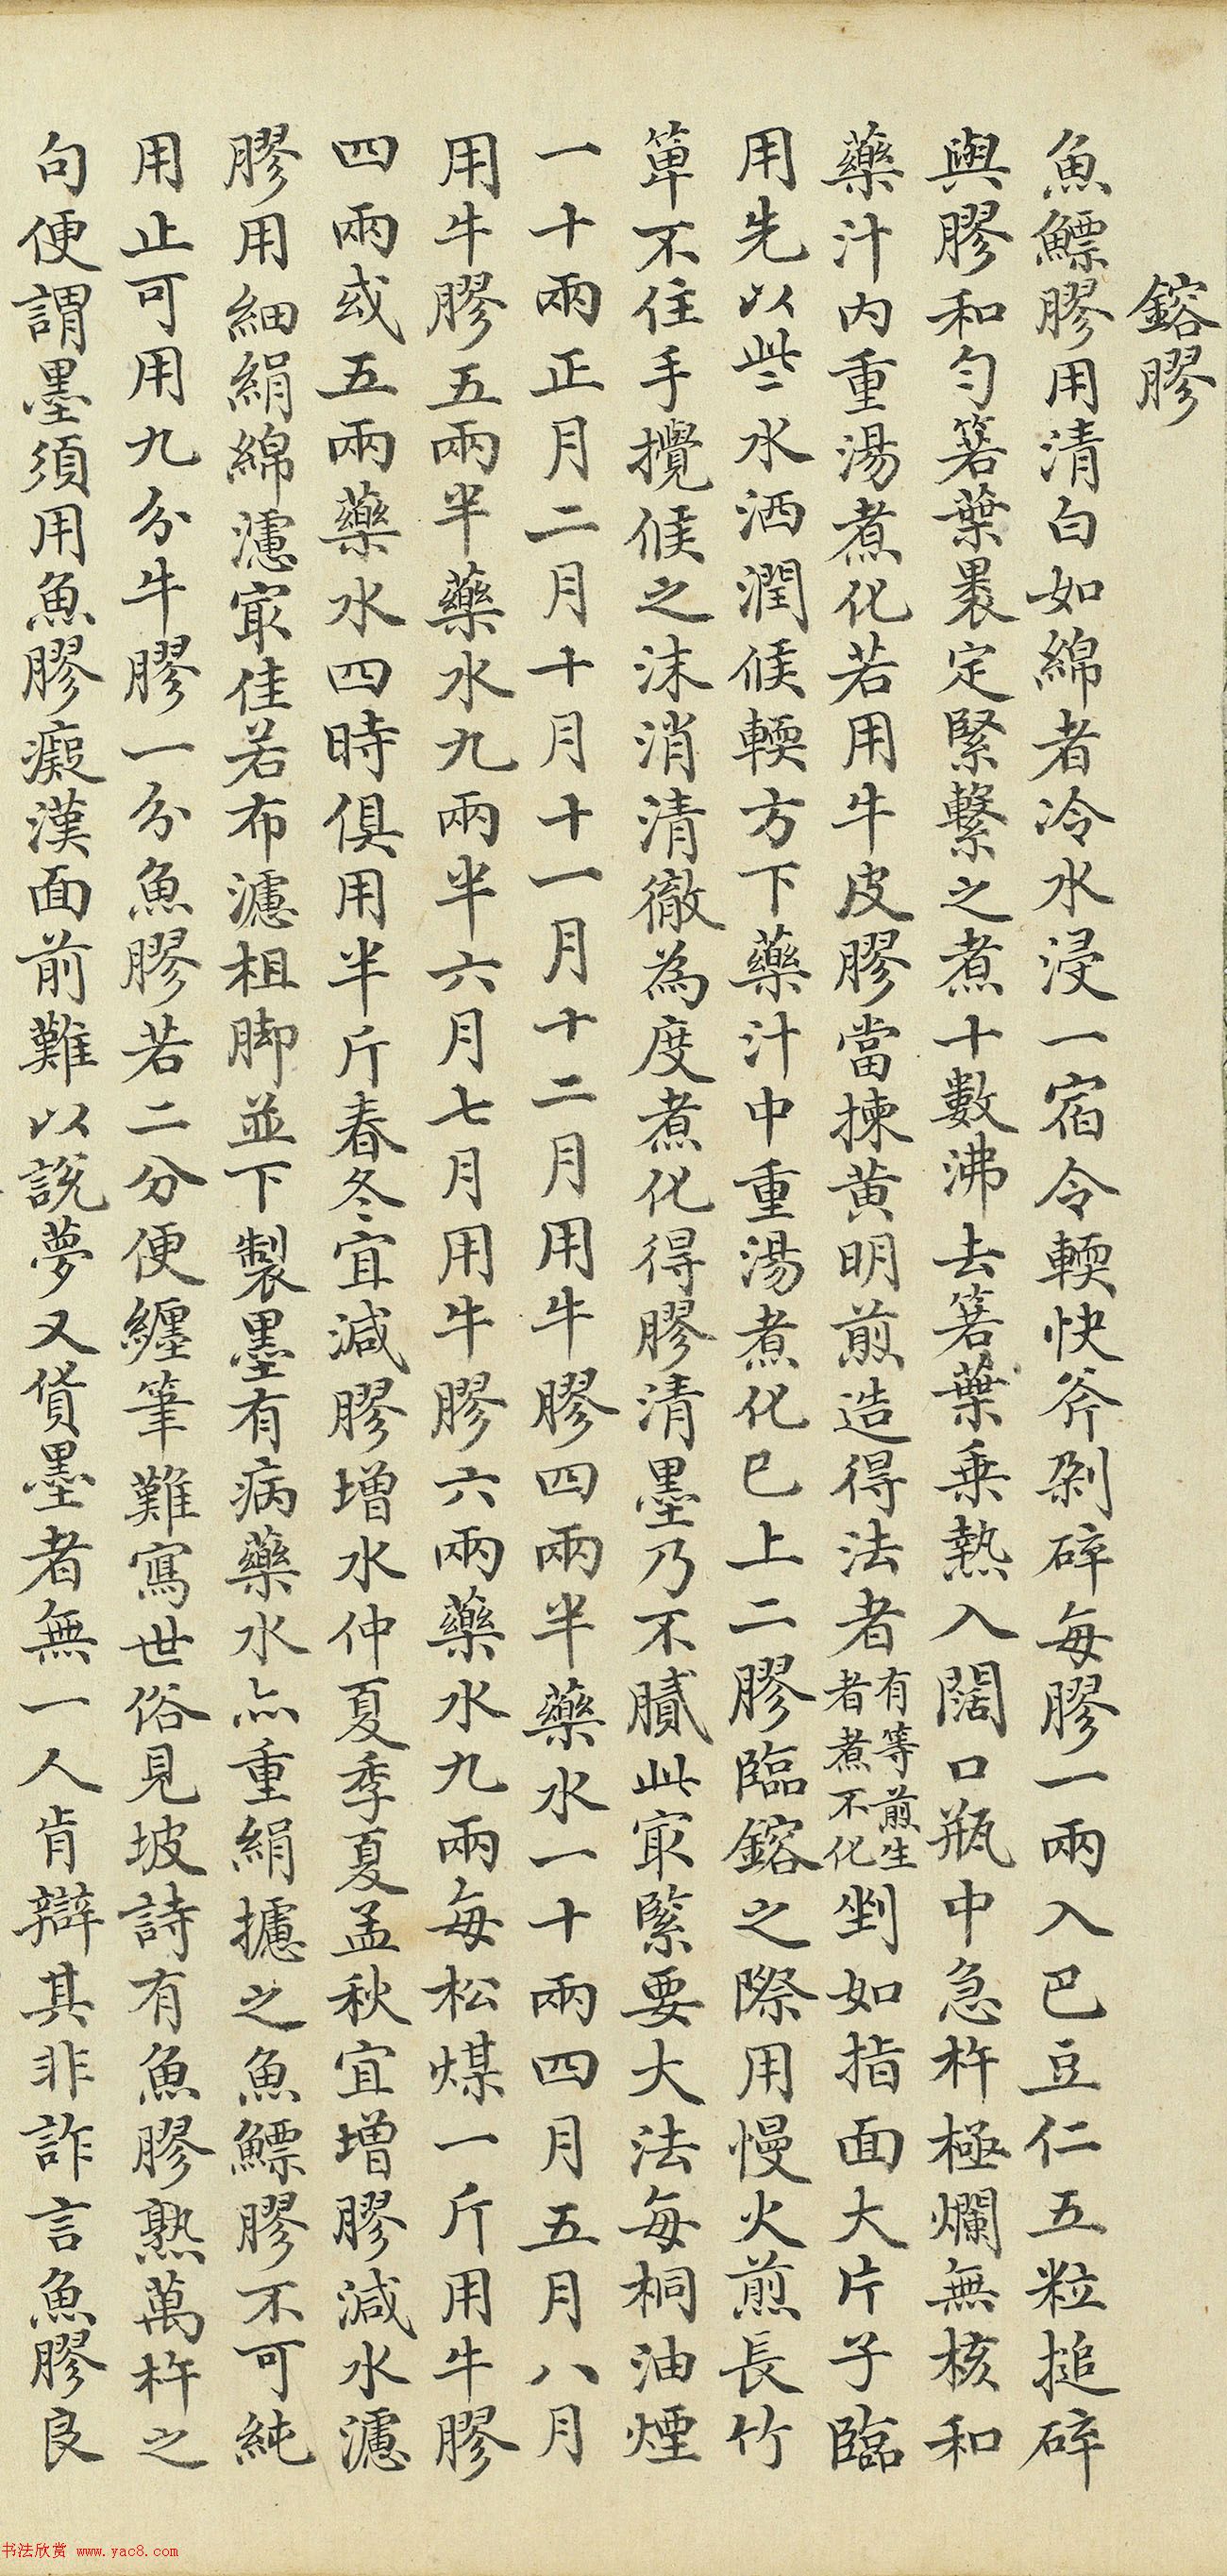 鎔膠
魚鰾膠用清白如綿者冷水浸一宿令輭快斧剁碎每膠一兩入巴豆仁五粒搥碎
與膠和勻箬葉裹定緊繫之煮十數沸去箬葉乗熱入闊口瓶中急杵極爛無核和
藥汁内重湯煮化若用牛皮膠當揀黄明煎造得法者有等煎生者煮不化剉如指面大片子臨
用先以些水洒潤候輭方下藥汁中重湯煮化已上二膠臨鎔之際用慢火煎長竹
箄不住手攪候之沫消清徹為度煮化得膠清墨乃不膩此㝡緊要大法每桐油煙
一十兩正月二月十月十一月十二月用牛膠四兩半藥水一十兩四月五月八月
用牛膠五兩半藥水九兩半六月七月用牛膠六兩藥水九兩每松煤一斤用牛膠
四兩或五兩藥水四時俱用半斤春冬宜減膠增水仲夏季夏孟秋宜增膠減水濾
膠用細絹綿濾㝡佳若布濾粗脚並下製墨有病藥水亦重絹攄之魚鰾膠不可純
用止可用九分牛膠一分魚膠若二分便纏筆難寫世俗見坡詩有魚膠熟萬杵之
句便謂墨須用魚膠癡漢面前難以說夢又貨墨者無一人肯辯其非詐言魚膠良
书法欣赏 www.yac8.com